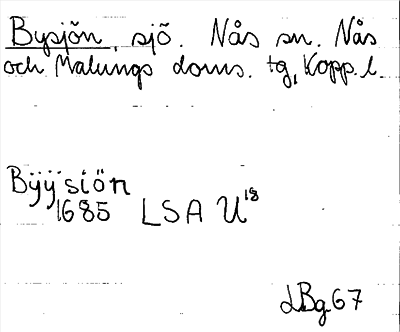 Bysjön, sjö. Nås sn. Nås
och Malungs doms. tg, Kopp. l.
Bÿÿsiön
1685 LSA U18
LBg67